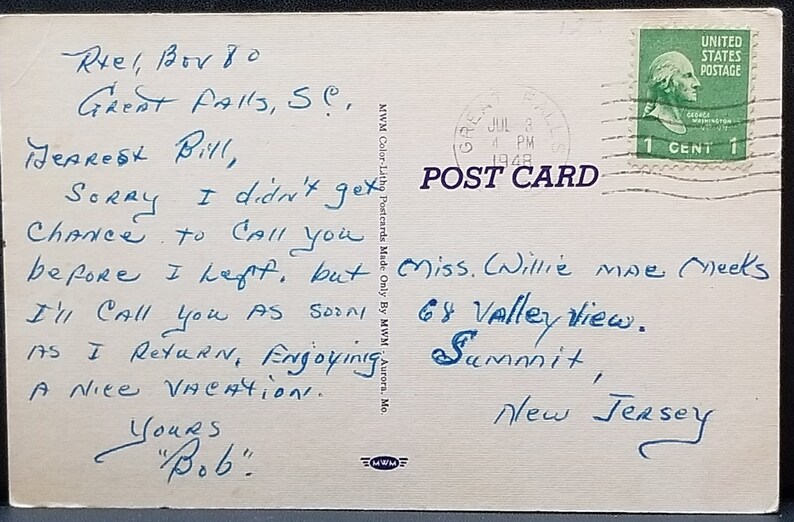 Rte 1, Box 80
Great Falls, SC.
Dearest Bill,
Sorry I didn't get
chance to call you
before I left. but
I'll call you as soon
as I return. Enjoying
a nice vacation.
Yours
"Bob".
MWM Color-Litho Postcards Made Only By MWM - Aurora, Mo.
MWM
GREAT FALLS
JUL 8
4 PM
1948
UNITED
STATES
POSTAGE
GEORGE
WASHINGTON
1 CENT 1
POST CARD
Miss. Willie Mae Meeks
68 Valley View.
Summit,
New Jersey